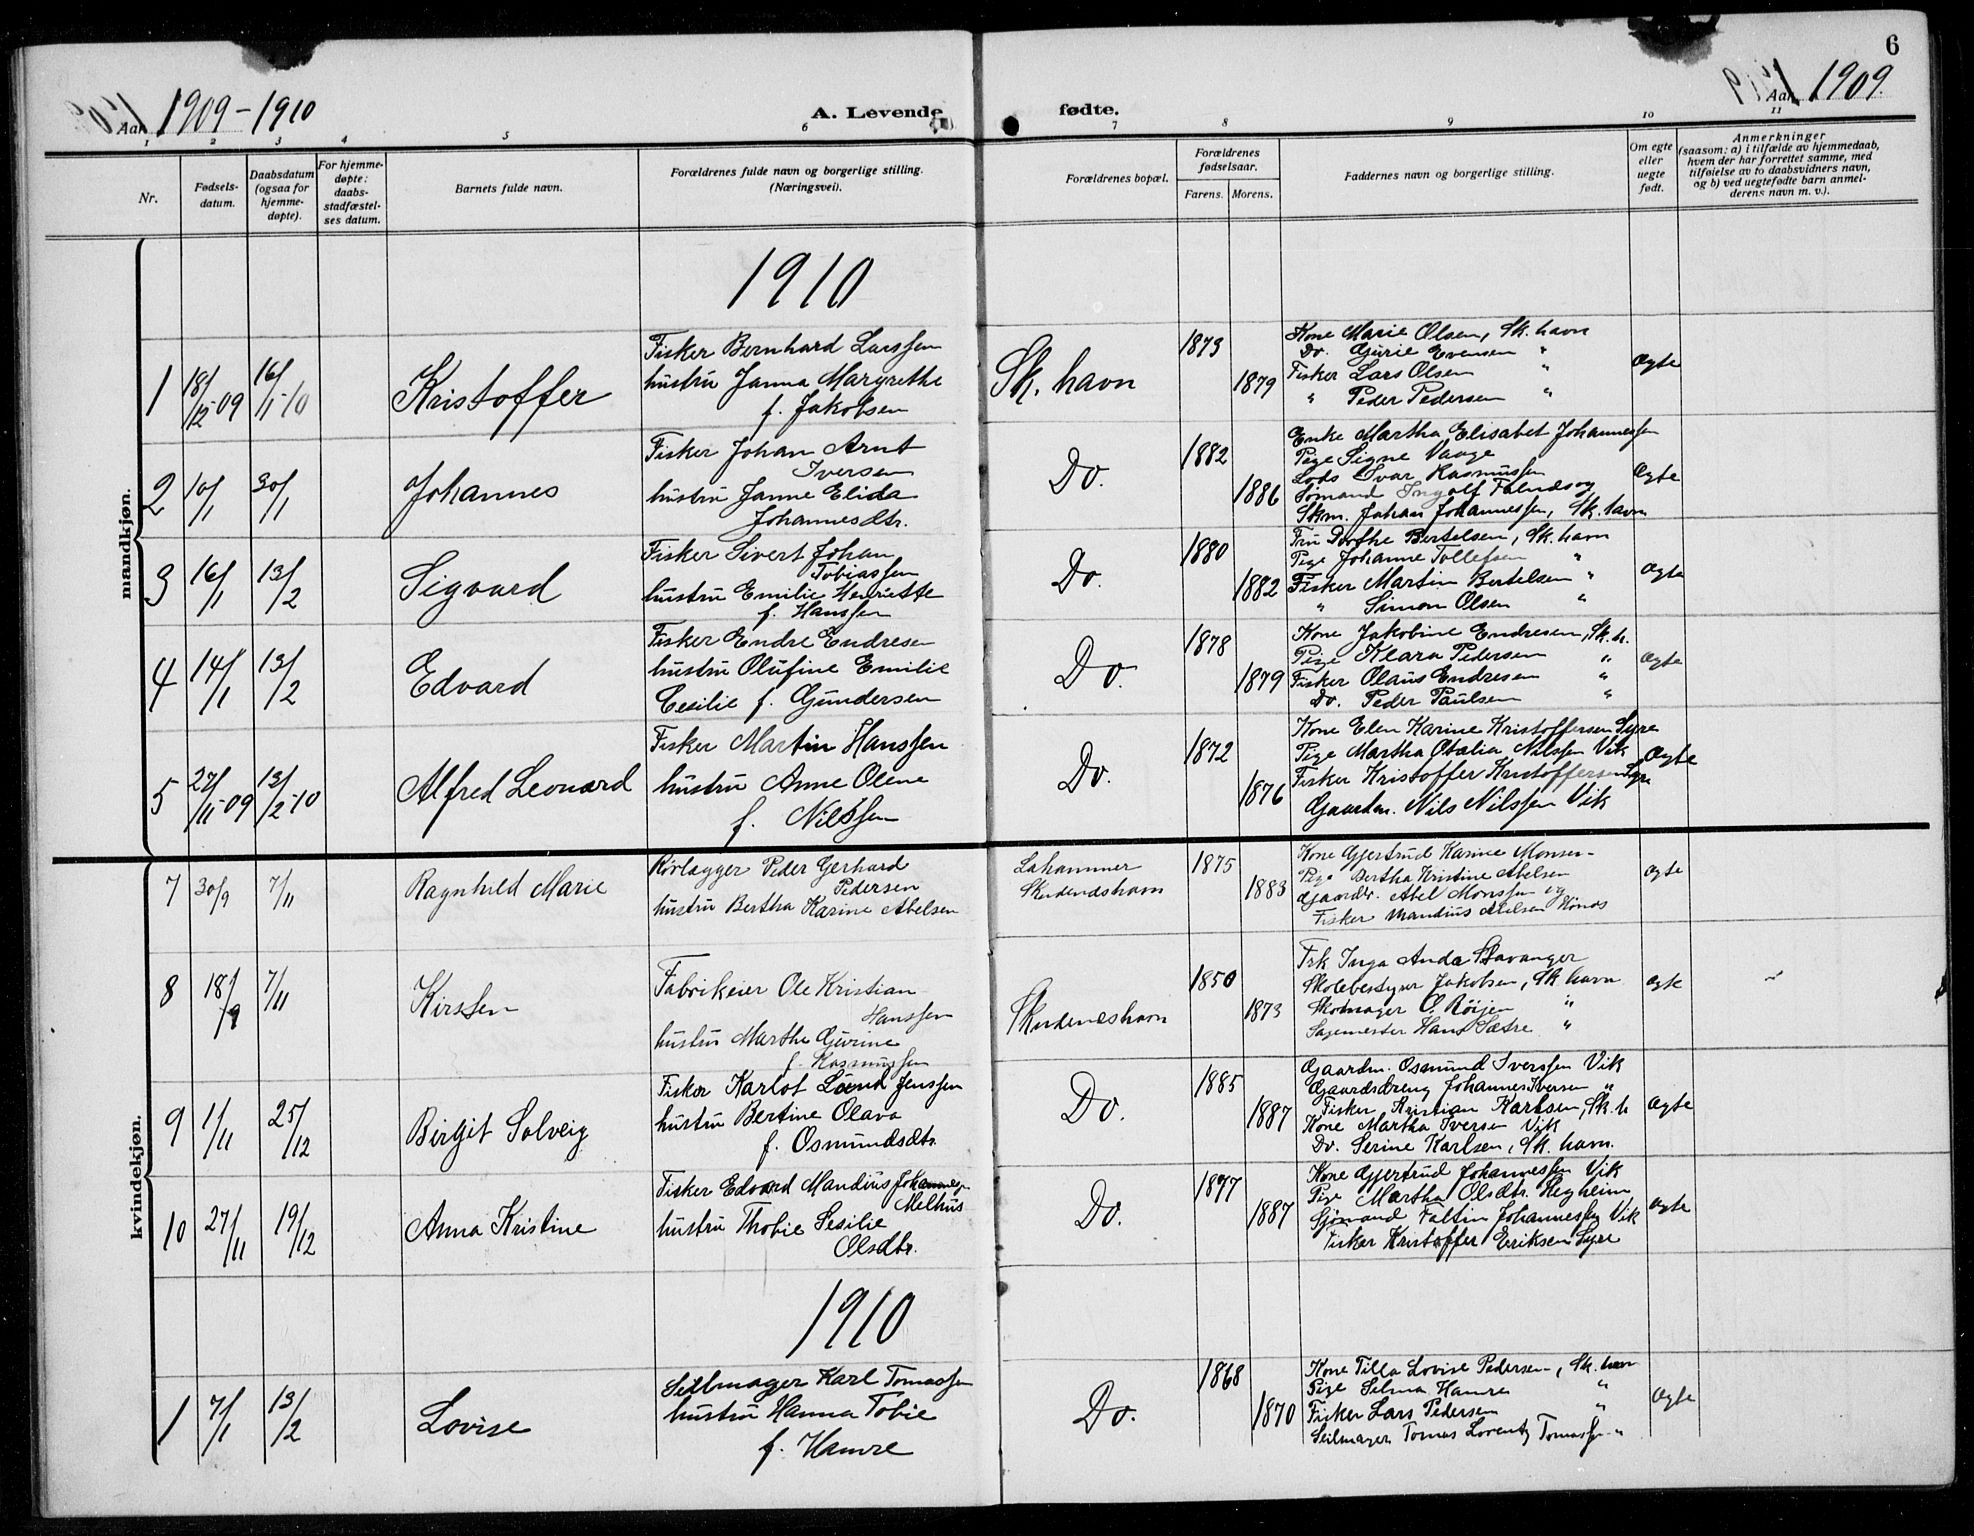 6
Aar 1909-1910
A. Levende fødte.
Aar 1909.
1 2 3 4 5 6 7 8 9 10 11
Nr.
Fødsels-
datum.
Daabsdatum
(ogsaa for
hjemme-
døpte).
For hjemme-
døpte:
daabs-
stadfæstel-
ses datum.
Barnets fulde navn.
Forældrenes fulde navn og borgerlige stilling.
(Næringsvei).
Forældrenes bopæl.
Forældrenes
fødselsaar.
Farens. Morens.
Faddernes navn og borgerlige stilling.
Om egte
eller
uegte
født.
Anmerkninger
(saasom: a) i tilfælde av hjemmedaab,
hvem der har forrettet samme, med
tilføielse av to daabsvidners navn,
og b) ved uegtefødte barn anmel-
derens navn m. v.).
mandkjøn.
1910
1 18/12-09 16/1-10 Kristoffer
Fisker Bernhard Larssen
hustru Janna Margrethe
f. Jakobsen
Sk. havn
1873
1879
Kone Marie Olsen, Sk. havn
Do. Gurie Evensen "
Fisker Lars Olsen "
" Peder Pedersen "
Ægte
2 10/1 30/1 Johannes
Fisker Johan Arnt
Iversen
hustru Janne Elida
Johannesdtr.
Do.
1882
1886
Enke Martha Elisabet Johannessen
Pige Signe Vaage
Lods Ivar Rasmussen
Sømand Ingolf
Skm. Johan Johannessen, Sk. havn
Ægte
3 16/1 13/2 Sigvard
Fisker Sivert Johan
Tobiassen
hustru Emilie Henriette
f. Hanssen
Do.
1880
1882
Fru Dorthe Bertelsen, Sk. havn
Pige Johanne Tollefsen "
Fisker Martin Bertelsen "
" Simon Olsen "
Ægte
4 14/1 13/2 Edvard
Fisker Endre Endresen
hustru Olufine Emilie
Cesilie f. Gundersen
Do.
1878
1879
Kone Jakobine Endresen, Sk. h.
Pige Klara Pedersen "
Fisker Olaus Endresen "
Do. Peder Paulsen "
Ægte
5 27/11-09 13/2-10 Alfred Leonard
Fisker Martin Hanssen
hustru Anne Olene
f. Nilssen
Do.
1872
1876
Kone Elen Karine Kristoffersen Syre
Pige Martha Otalia Nilssen Vik
Fisker Kristoffer Kristoffersen Syre
Gaardm. Nils Nilssen Vik
Ægte
kvindekjøn.
7 30/9 7/11 Ragnhild Marie
Rørlægger Peder Gerhard
Pedersen
hustru Bertha Karine Abelsen
Lahammer
Skudeneshavn
1875
1883
Kone Gjertrud Karine Monsen
Pige Bertha Kristine Abelsen
Gaardbr. Abel Monssen og
Fisker Mandius Abelsen Hønos
Ægte
8 18/9 7/11 Kirsten
Fabrikeier Ole Kristian
Hanssen
hustru Marthe Gurine
f. Rasmussen
Skudeneshavn
1850
1873
Frk Inga Anda Stavanger
Skolebestyrer Jakobsen, Sk. havn
Skomager O. Røijen "
Sagemester Hans Sætre "
Ægte
9 1/11 25/12 Birgit Solveig
Fisker Karlot Lund Jenssen
hustru Bertine Olava
f. Osmundsdtr.
Do.
1885
1887
Gaardm. Osmund Iverssen Vik
Gaardsdreng Johannes Iversen "
Fisker Kristian Karlsen, Sk. h
Kone Martha Iversen Vik
Do. Serine Karlsen, Sk. havn.
Ægte
10 27/11 19/12 Anna Kristine
Fisker Edvard Mandius Johannessen
Melhus
hustru Thobie Sesilie
Olsdtr.
Do.
1877
1887
Kone Gjertrud Johannessen Vik
Pige Martha Olsdtr. Stegheim
Sjømand Faltin Johannessen Vik
Fisker Kristoffer Eriksen Syre
Ægte
1910
1 7/1 13/2 Lovise
Seilmager Karl Tomassen
hustru Hanna Tobie
f. Hamre
Do.
1868
1870
Kone Tilla Lovise Pedersen, Sk. havn
Pige Selma Hamre "
Fisker Lars Pedersen "
Seilmager Tomas Lorentz Tomassen "
Ægte